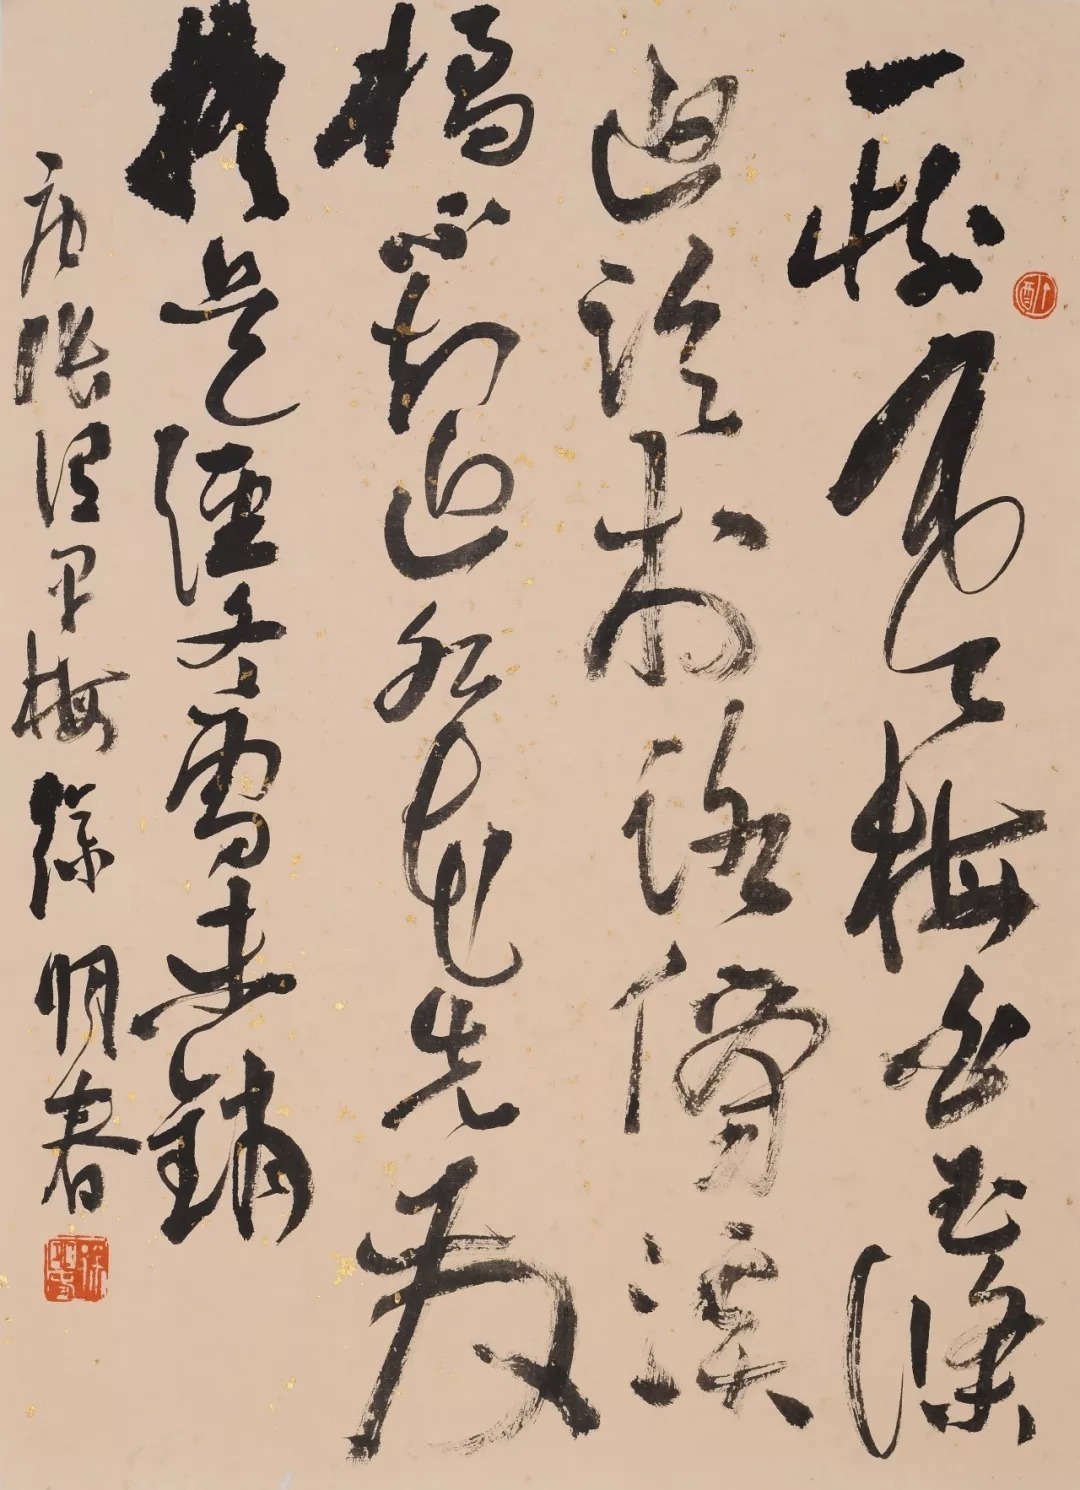 一樹寒梅白玉條
迥臨村路傍溪
橋不知近水花先發
疑是經冬雪未銷
唐張謂早梅 徐明春